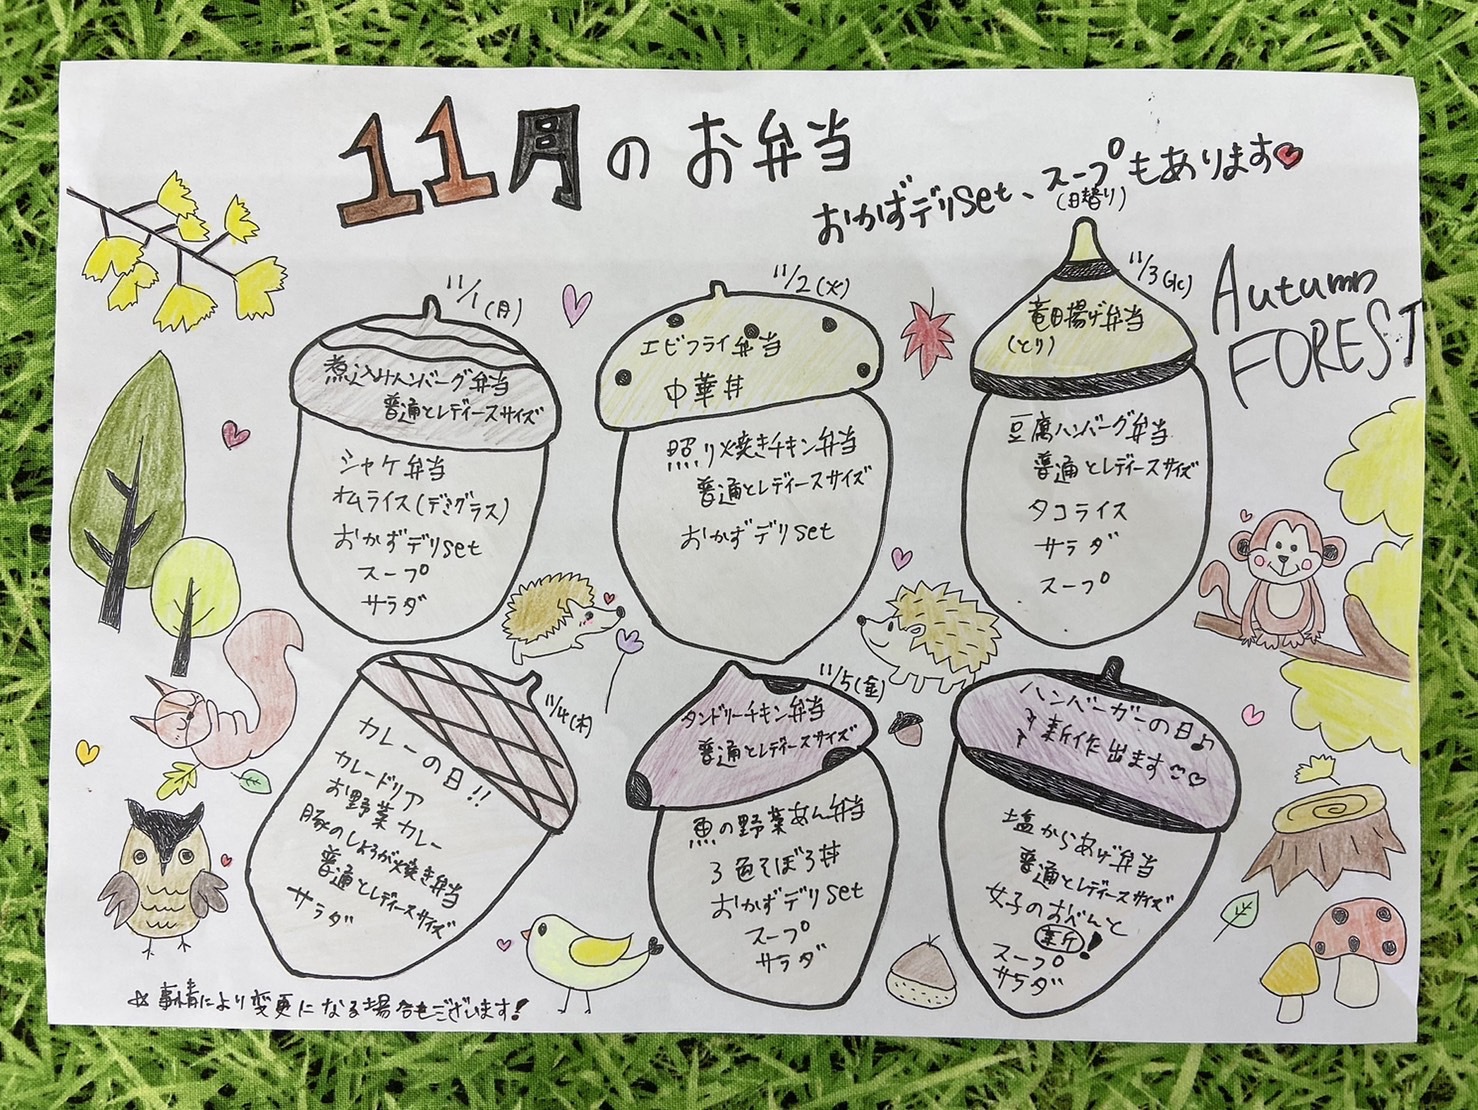 11月のお弁当
おかずデリset、スープもあります
(日替り)
Autumn
FOREST
11/1(月)
煮込みハンバーグ弁当
普通とレディースサイズ
シャケ弁当
オムライス(デミグラス)
おかずデリset
スープ
サラダ
11/2(火)
エビフライ弁当
中華丼
照り焼きチキン弁当
普通とレディースサイズ
おかずデリset
11/3(水)
竜田揚げ弁当
(とり)
豆腐ハンバーグ弁当
普通とレディースサイズ
タコライス
サラダ
スープ
11/4(木)
カレーの日!!
カレードリア
お野菜カレー
豚のしょうが焼き弁当
普通とレディースサイズ
サラダ
11/5(金)
タンドリーチキン弁当
普通とレディースサイズ
魚の野菜あん弁当
3色そぼろ丼
おかずデリset
スープ
サラダ
ハンバーガーの日♪
新作出ます
塩からあげ弁当
普通とレディースサイズ
女子のおべんと
新!
スープ
サラダ
☆事情により変更になる場合もございます!